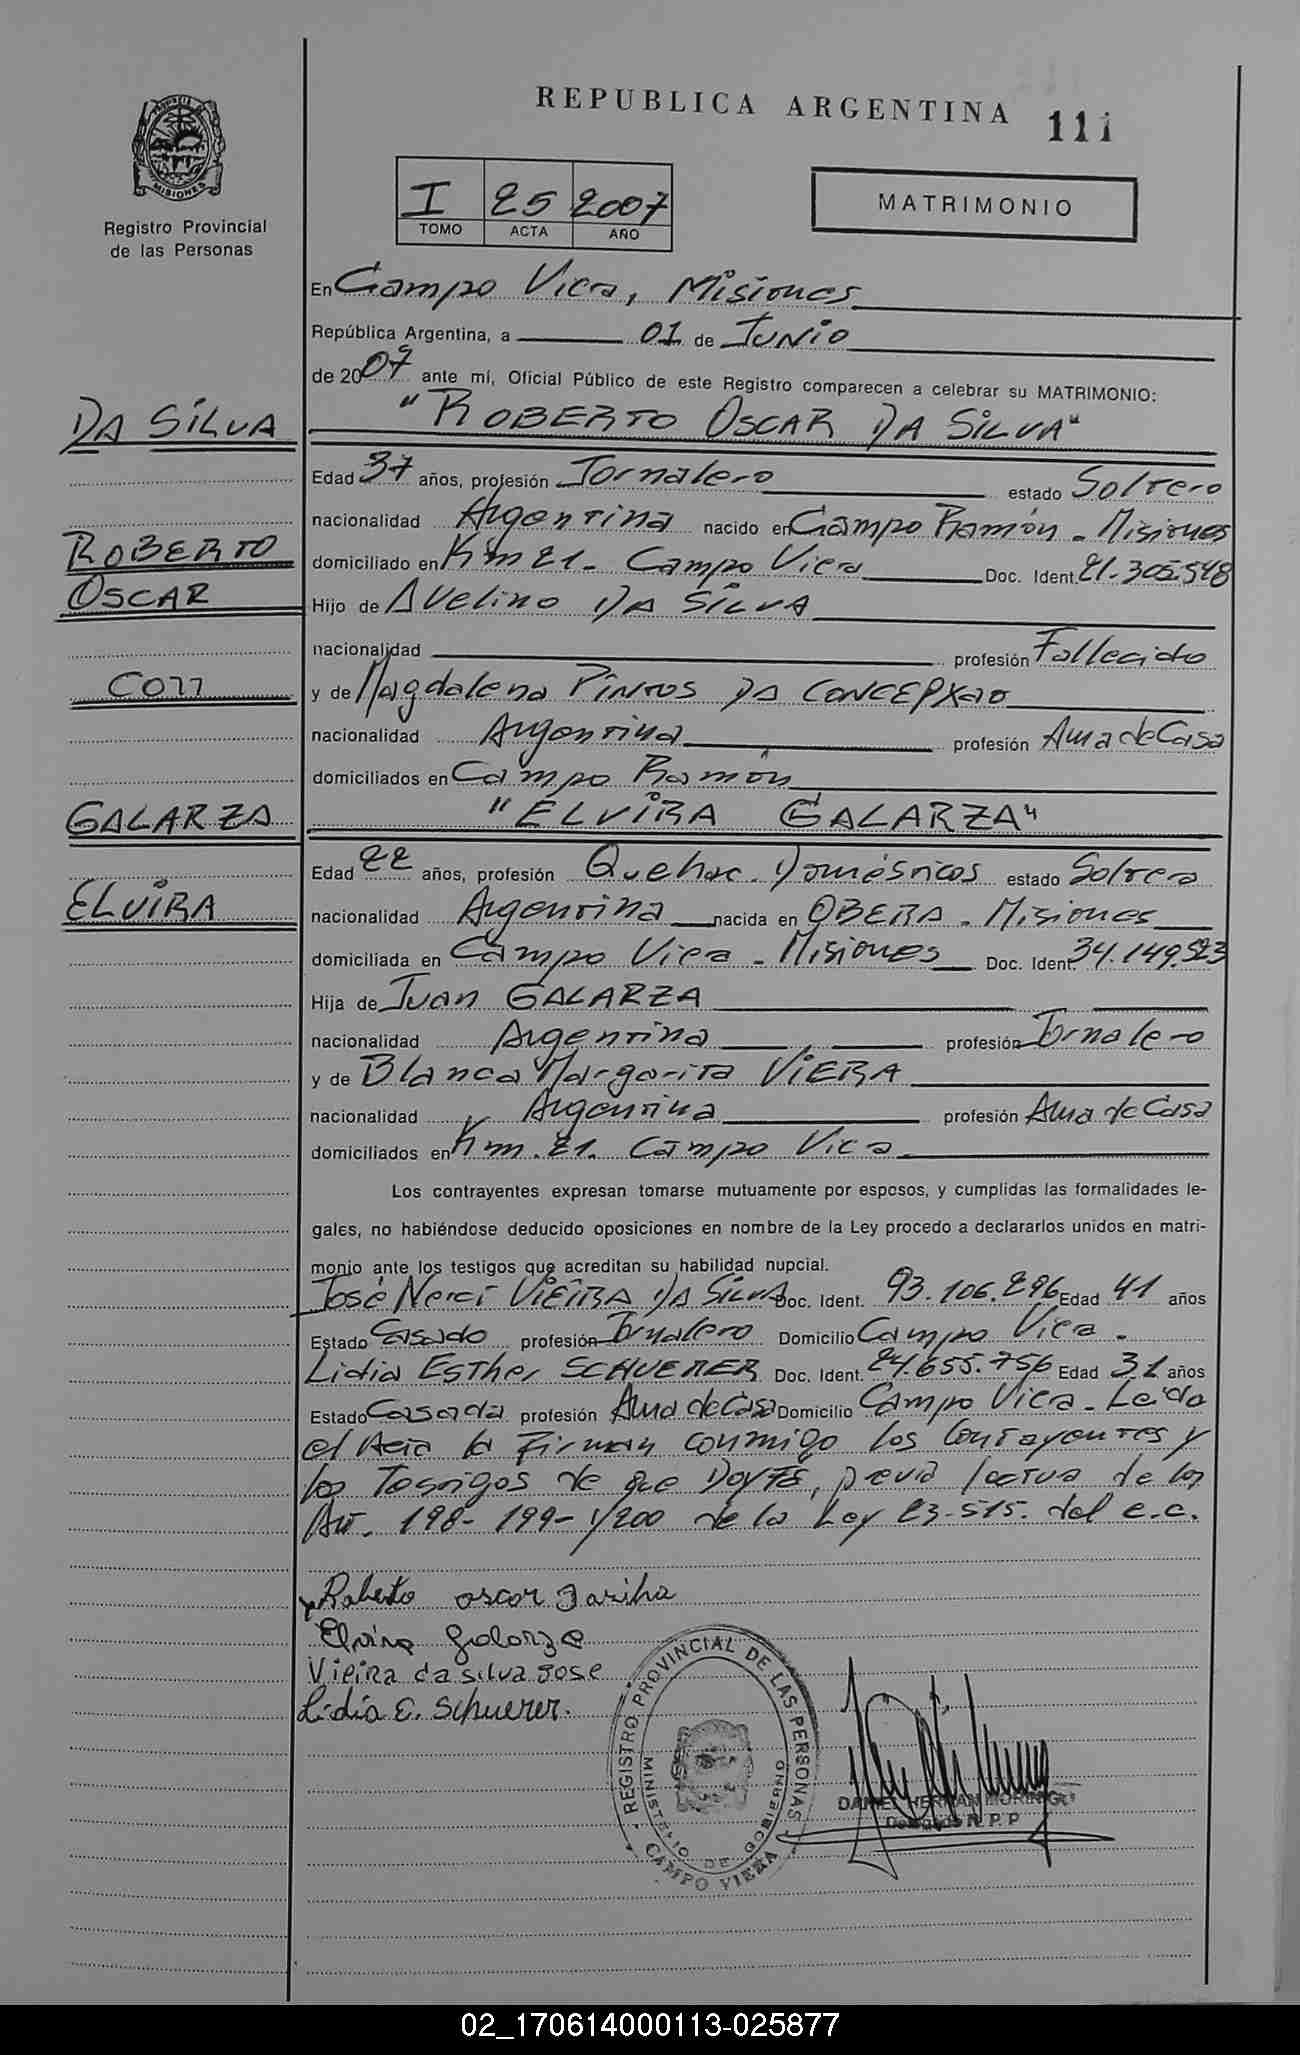 REPUBLICA ARGENTINA 111
MISIONES
Registro Provincial
de las Personas
I 25 2007
TOMO ACTA AÑO
MATRIMONIO
En Campo Viera, Misiones
República Argentina, a 01 de Junio
de 2007 ante mí, Oficial Público de este Registro comparecen a celebrar su MATRIMONIO:
DA SILVA "ROBERTO OSCAR DA SILVA"
Edad 37 años, profesión Jornalero estado Soltero
nacionalidad Argentina nacido en Campo Ramón - Misiones
ROBERTO
domiciliado en Km 21 - Campo Viera Doc. Ident. 21.305.548
OSCAR
Hijo de Avelino DA SILVA
nacionalidad profesión Fallecido
CON
y de Magdalena PINTOS DA CONCEPXAO
nacionalidad Argentina profesión Ama de Casa
domiciliados en Campo Ramón
GALARZA "ELVIRA GALARZA"
Edad 22 años, profesión Quehac. Domésticos estado Soltera
ELVIRA
nacionalidad Argentina nacida en OBERA - Misiones
domiciliada en Campo Viera - Misiones Doc. Ident. 34.149.523
Hija de Juan GALARZA
nacionalidad Argentina profesión Jornalero
y de Blanca Margarita VIERA
nacionalidad Argentina profesión Ama de Casa
domiciliados en Km. 21. Campo Viera
Los contrayentes expresan tomarse mutuamente por esposos, y cumplidas las formalidades le-
gales, no habiéndose deducido oposiciones en nombre de la Ley procedo a declararlos unidos en matri-
monio ante los testigos que acreditan su habilidad nupcial.
José Nerci VIEIRA DA SILVA Doc. Ident. 93.106.296 Edad 41 años
Estado Casado profesión Jornalero Domicilio Campo Viera.
Lidia Esther SCHUERER Doc. Ident. 24.655.756 Edad 31 años
Estado Casada profesión Ama de Casa Domicilio Campo Viera - Leida
el Acta la Firman conmigo los Contrayentes y
los Testigos de que Doy Fé, previa lectura de los
Art. 198- 199- y 200 de la Ley 23-515. del C.C.
Roberto oscar
Elvira Galarza
Vieira da silva Jose
Lidia E. Schuerer.
REGISTRO PROVINCIAL DE LAS PERSONAS
MINISTERIO DE GOBIERNO
CAMPO VIERA
DANIEL HERNAN MORINIGO
Delegado R. P. P
02_170614000113-025877